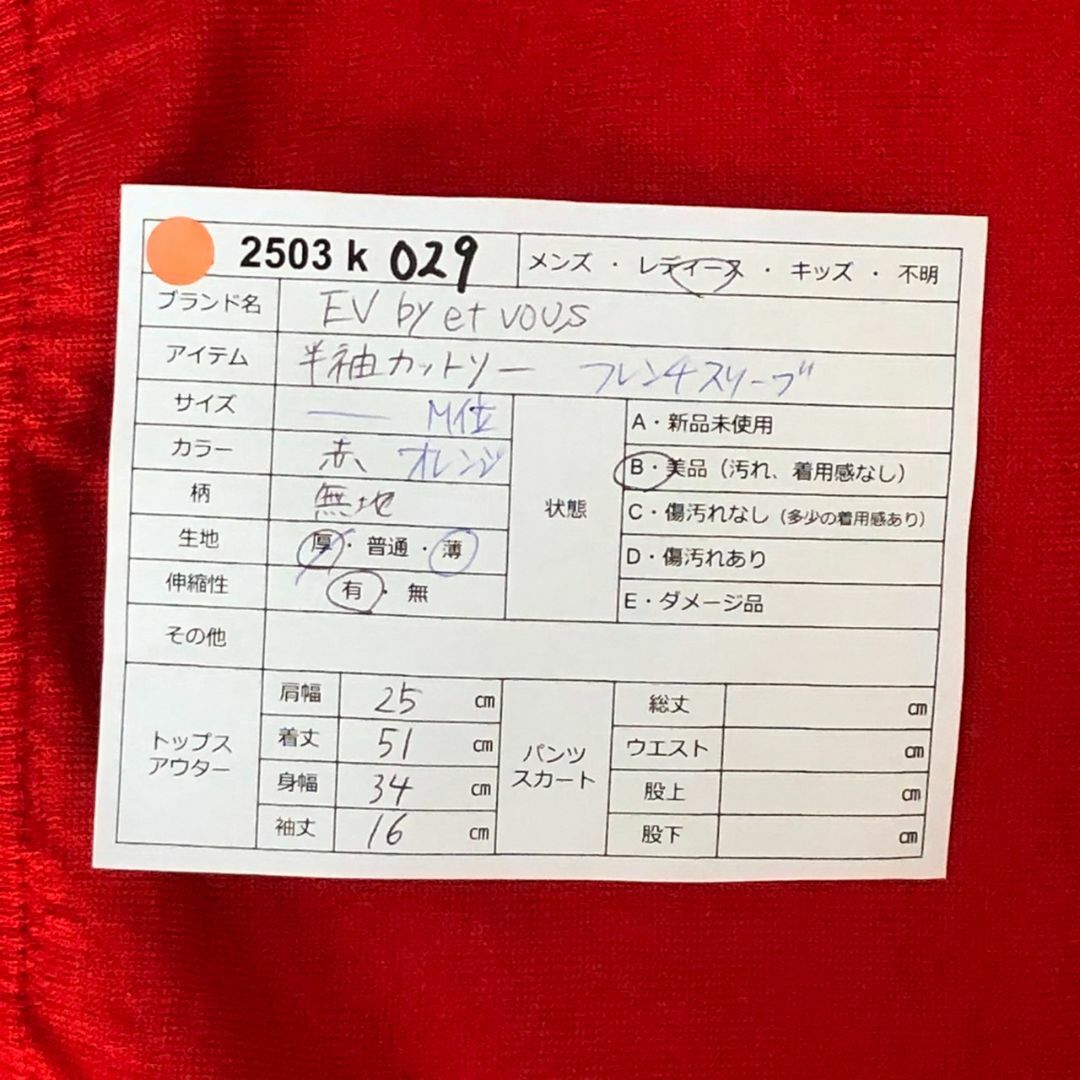 2503 k 029 メンズ・レディース・キッズ・不明
ブランド名 EV by et vous
アイテム 半袖カットソー フレンチスリーブ
サイズ — M位
カラー 赤、オレンジ
柄 無地
生地 厚・普通・薄
伸縮性 有・無
状態
A・新品未使用
B・美品（汚れ、着用感なし）
C・傷汚れなし（多少の着用感あり）
D・傷汚れあり
E・ダメージ品
その他
トップス
アウター
肩幅 25 ㎝
着丈 51 ㎝
身幅 34 ㎝
袖丈 16 ㎝
パンツ
スカート
総丈 ㎝
ウエスト ㎝
股上 ㎝
股下 ㎝